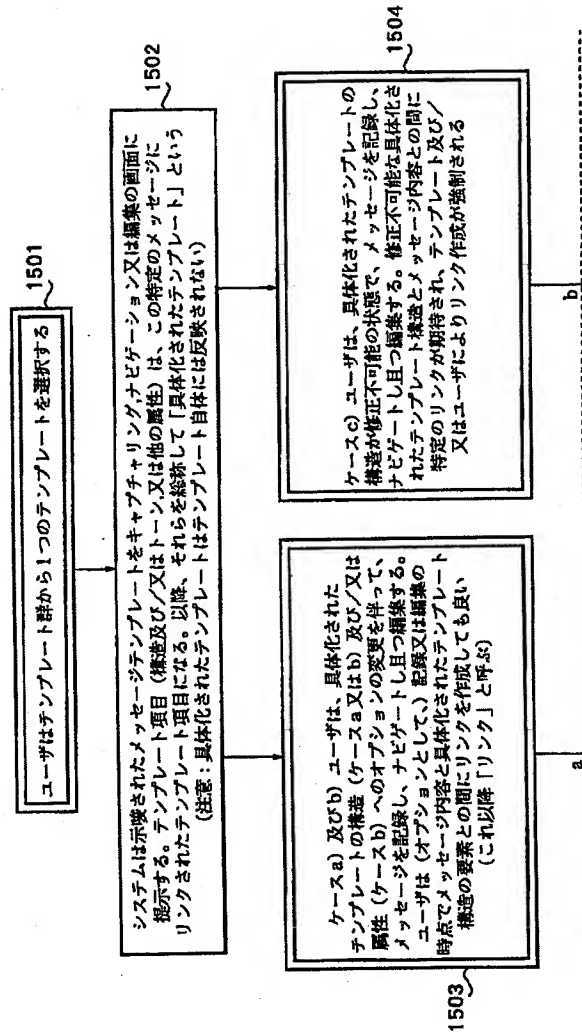 1501
ユーザはテンプレート群から1つのテンプレートを選択する
1502
システムは示唆されたメッセージテンプレートをキャプチャリング,ナビゲーション又は編集の画面に
提示する。テンプレート項目(構造及び/又はトーン,又は他の属性)は、この特定のメッセージに
リンクされたテンプレート項目になる。以降、それらを総称して「具体化されたテンプレート」という
(注意:具体化されたテンプレートはテンプレート自体には反映されない)
1503
ケースa)及びb)ユーザは、具体化された
テンプレートの構造(ケースa又はb)及び/又は
属性(ケースb)へのオプションの変更を伴って、
メッセージを記録し、ナビゲートし且つ編集する。
ユーザは(オプションとして、)記録又は編集の
時点でメッセージ内容と具体化されたテンプレート
構造の要素との間にリンクを作成しても良い
(これ以降「リンク」と呼ぶ)
1504
ケースc)ユーザは、具体化されたテンプレートの
構造が修正不可能の状態で、メッセージを記録し、
ナビゲートし且つ編集する。修正不可能な具体化さ
れたテンプレート構造とメッセージ内容との間に
特定のリンクが期待され、テンプレート及び/
又はユーザによりリンク作成が強制される
a
b